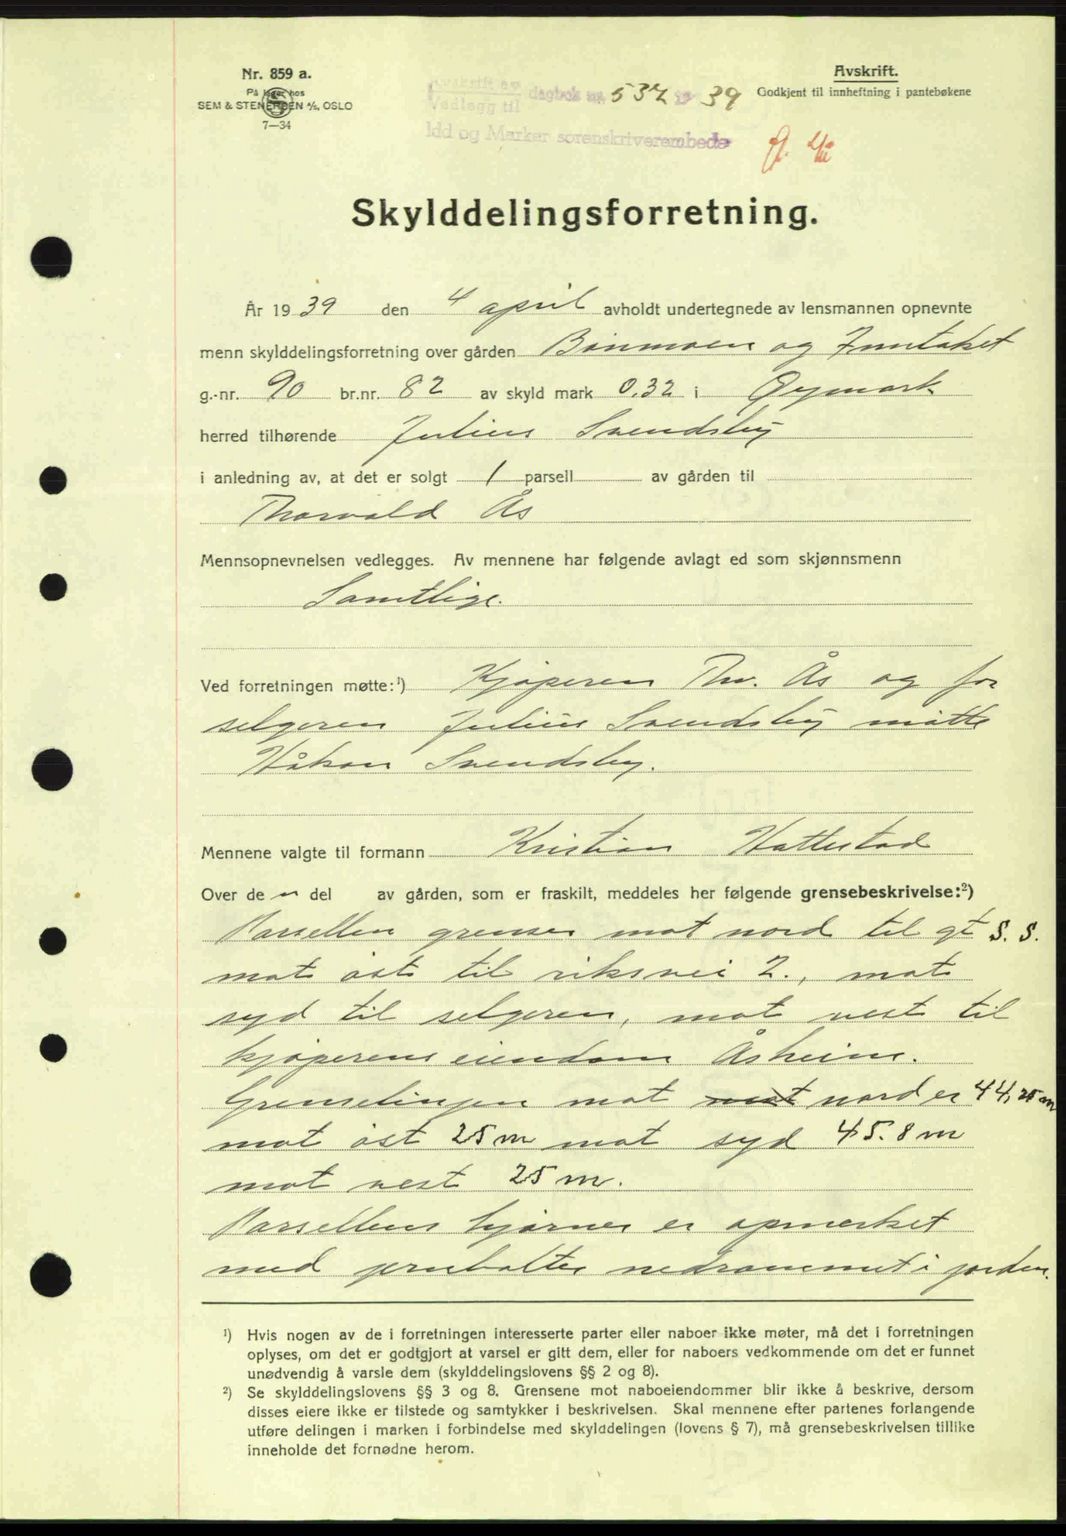 Nr. 859 a.
På lager hos
SEM & STENERSEN A/S, OSLO
7—34
Avskrift av
Vedlegg til dagbok nr. 537 19 39
Idd og Marker sorenskriverembede
Avskrift.
Godkjent til innheftning i pantebøkene
Skylddelingsforretning.
År 19 39 den 4 april avholdt undertegnede av lensmannen opnevnte
menn skylddelingsforretning over gården Bönmoen og Inntaket
g.-nr. 90 br.nr. 82 av skyld mark 0,32 i Øymark
herred tilhørende Julius Svendsby
i anledning av, at det er solgt 1 parsell av gården til
Thorvald Ås
Mennsopnevnelsen vedlegges. Av mennene har følgende avlagt ed som skjønnsmenn
Samtlige.
Ved forretningen møtte:¹) Kjöperen Thv. Ås og for
selgeren Julius Svendsby mötte
Håkon Svendsby.
Mennene valgte til formann Kristian Hattestad
Over de n del av gården, som er fraskilt, meddeles her følgende grensebeskrivelse:²)
Parsellen grenser mot nord til gt S. S.
mot öst til riksvei 2., mot
syd til selgeren, mot vest til
kjöperens eiendom Åsheim.
Grenselinjen mot vest nord er 44,25 m
mot öst 25 m mot syd 45.8 m
mot vest 25 m.
Parsellens hjörner er opmerket
med jernbolter nedrammet i jorden.
¹) Hvis nogen av de i forretningen interesserte parter eller naboer ikke møter, må det i forretningen
oplyses, om det er godtgjort at varsel er gitt dem, eller for naboers vedkommende om det er funnet
unødvendig å varsle dem (skylddelingslovens §§ 2 og 8).
²) Se skylddelingslovens §§ 3 og 8. Grensene mot naboeiendommer blir ikke å beskrive, dersom
disses eiere ikke er tilstede og samtykker i beskrivelsen. Skal mennene efter partenes forlangende
utføre delingen i marken i forbindelse med skylddelingen (lovens § 7), må grensebeskrivelsen tillike
inneholde det fornødne herom.